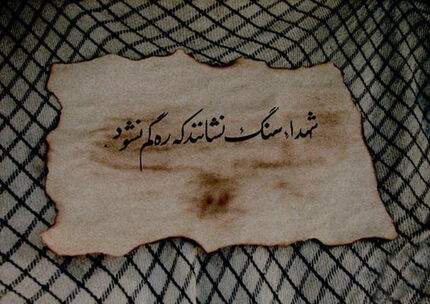 شهدا سنگ نشانند که ره گم نشود.